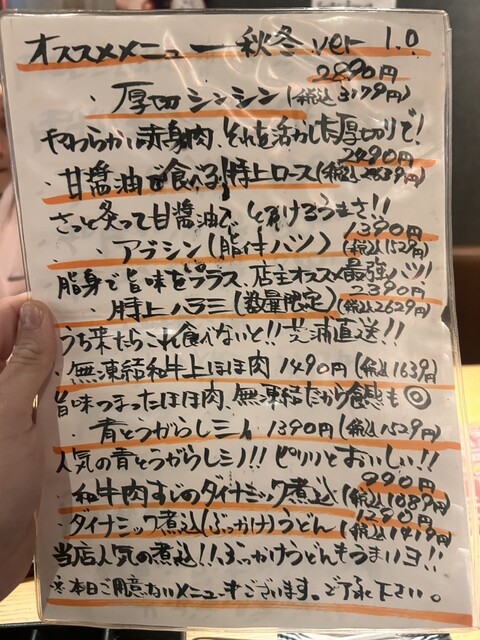 オススメメニュー 秋冬 ver 1.0
2890円
・厚切シンシン(税込3179円)
やわらかい赤身肉、それを活かした厚切りで!
2490円
・甘醤油で食べる!特上ロース(税込2639円)
さっと炙って甘醤油で、とろけるうまさ!!
1390円
・アブシン(脂付ハツ)(税込1529円)
脂身で旨味をプラス、店主オススメ最強ハツ!
2390円
・特上ハラミ(数量限定)(税込2629円)
うち来たらこれ食べないと!!芝浦直送!!
・無凍結和牛上ほほ肉 1490円(税込1639円)
旨味つまったほほ肉、無凍結だから食感も◎
・青とうがらしミノ 1390円(税込1529円)
人気の青とうがらし!!ピリリとおいしい!!
990円
・和牛肉すじのダイナミック煮込(税込1089円)
1290円
・ダイナミック煮込(ぶっかけ)うどん(税込1419円)
当店人気の煮込!!ぶっかけうどんもうまいヨ!!
※本日ご用意ないメニューもございます。ご了承下さい。